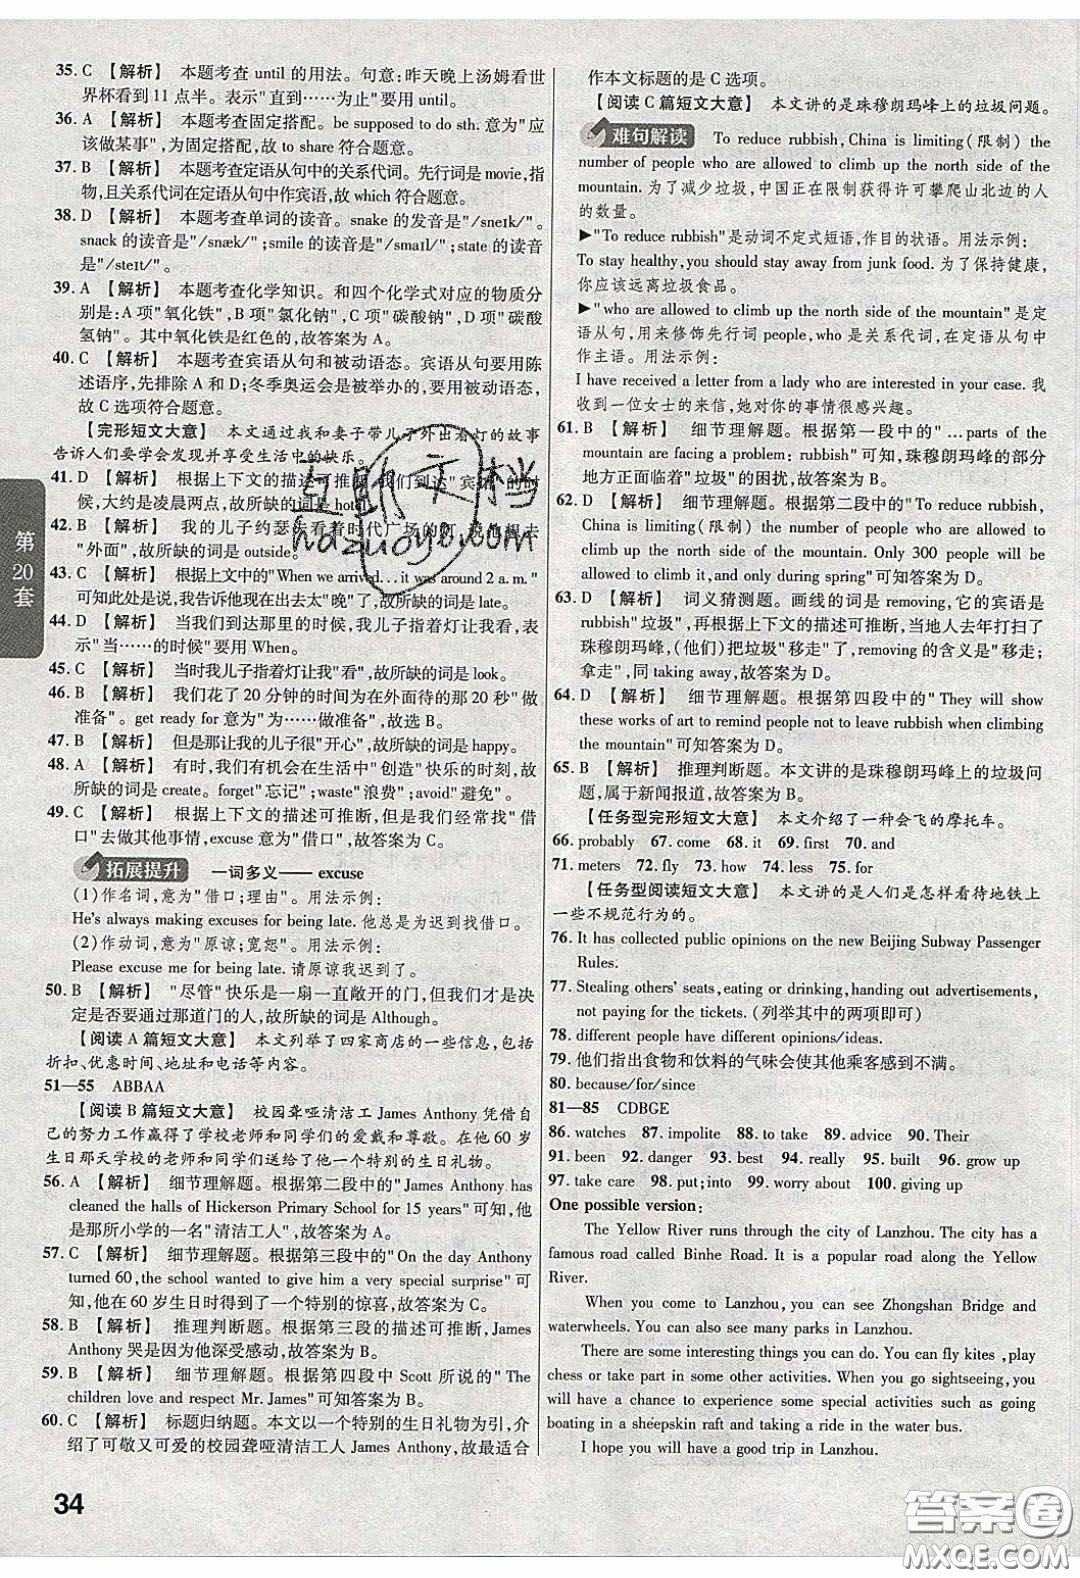 35. C 【解析】 本题考查 until 的用法。句意:昨天晚上汤姆看世
界杯看到 11 点半。表示"直到……为止"要用 until。
36. A 【解析】 本题考查固定搭配。be supposed to do sth. 意为"应
该做某事",为固定搭配,故 to share 符合题意。
37. B 【解析】 本题考查定语从句中的关系代词。先行词是 movie,指
物,且关系代词在定语从句中作宾语,故 which 符合题意。
38. D 【解析】 本题考查单词的读音。snake 的发音是"/sneɪk/"。
snack 的读音是"/snæk/";smile 的读音是"/smaɪl/";state 的读音
是"/steɪt/"。
39. A 【解析】 本题考查化学知识。和四个化学式对应的物质分
别是:A 项"氧化铁",B 项"氯化钠",C 项"碳酸钠",D 项"碳酸
氢钠"。其中氧化铁是红色的,故答案为 A。
40. C 【解析】 本题考查宾语从句和被动语态。宾语从句要用陈
述语序,先排除 A 和 D;冬季奥运会是被举办的,要用被动语态,
故 C 选项符合题意。
【完形短文大意】 本文通过我和妻子带儿子外出看灯的故事
告诉人们要学会发现并享受生活中的快乐。
41. D 【解析】 根据上下文的描述可推断,我们到达"宾馆"的时
候,大约是凌晨两点,故所缺的词是 hotel
42. B 【解析】 我的儿子约瑟夫看着时代广场的灯,
"外面",故所缺的词是 outside。
43. C 【解析】 根据上文中的"When we arrived…it was around 2 a. m."
可知此处是说,我告诉他现在出去太"晚"了,故所缺的词是 late。
44. D 【解析】 当我们到达那里的时候,我儿子指着灯让我看,表
示"当……的时候"要用 When。
45. C 【解析】 当时我儿子指着灯让我"看",故所缺的词是 look。
46. B 【解析】 我们花了 20 分钟的时间为在外面待的那 20 秒"做
准备"。get ready for 意为"为……做准备",故选 B。
47. B 【解析】 但是那让我的儿子很"开心",故所缺的词是 happy。
48. A 【解析】 有时,我们有机会在生活中"创造"快乐的时刻,故
所缺的词是 create。forget"忘记";waste"浪费";avoid"避免"。
49. C 【解析】 根据上下文的描述可推断,但是我们经常找"借
口"去做其他事情,excuse 意为"借口",故答案为 C。
拓展提升 一词多义—— excuse
(1)作名词,意为"借口;理由"。用法示例:
He's always making excuses for being late. 他总是为迟到找借口。
(2)作动词,意为"原谅;宽恕"。用法示例:
Please excuse me for being late. 请原谅我迟到了。
50. B 【解析】 "尽管"快乐是一扇一直敞开的门,但我们才是决
定是否要通过那道门的人,故所缺的词是 Although。
【阅读 A 篇短文大意】 本文列举了四家商店的一些信息,包括
折扣、优惠时间、地址和电话等内容。
51—55 ABBAA
【阅读 B 篇短文大意】 校园聋哑清洁工 James Anthony 凭借自
己的努力工作赢得了学校老师和同学们的爱戴和尊敬。在他 60 岁
生日那天学校的老师和同学们送给了他一个特别的生日礼物。
56. A 【解析】 细节理解题。根据第二段中的"James Anthony has
cleaned the halls of Hickerson Primary School for 15 years"可知,
他是那所小学的一名"清洁工人",故答案为 A。
57. C 【解析】 细节理解题。根据第三段中的"On the day Anthony
turned 60,the school wanted to give him a very special surprise"可
知,他在 60 岁生日时得到了一个特别的惊喜,故答案为 C。
58. B 【解析】 推理判断题。根据第三段的描述可推断,James
Anthony 哭是因为他深受感动,故答案为 B。
59. B 【解析】 细节理解题。根据第四段中 Scott 所说的"The
children love and respect Mr. James"可知答案为 B。
60. C 【解析】 标题归纳题。本文以一个特别的生日礼物为引,介
绍了可敬又可爱的校园聋哑清洁工人 James Anthony,故最适合
作本文标题的是 C 选项。
【阅读 C 篇短文大意】 本文讲的是珠穆朗玛峰上的垃圾问题。
难句解读 To reduce rubbish,China is limiting(限制) the
number of people who are allowed to climb up the north side of the
mountain. 为了减少垃圾,中国正在限制获得许可攀爬山北边的人
的数量。
▶"To reduce rubbish"是动词不定式短语,作目的状语。用法示例:
To stay healthy,you should stay away from junk food. 为了保持健康,
你应该远离垃圾食品。
▶"who are allowed to climb up the north side of the mountain"是定
语从句,用来修饰先行词 people,who 是关系代词,在定语从句中
作主语。用法示例:
I have received a letter from a lady who are interested in your case. 我
收到一位女士的来信,她对你的事情很感兴趣。
61. B 【解析】 细节理解题。根据第一段中的"…parts of the
mountain are facing a problem: rubbish"可知,珠穆朗玛峰的部分
地方正面临着"垃圾"的困扰,故答案为 B。
62. D 【解析】 细节理解题。根据第二段中的"To reduce rubbish,
China is limiting(限制) the number of people who are allowed to
climb up the north side of the mountain. Only 300 people will be
allowed to climb it,and only during spring"可知答案为 D。
63. D 【解析】 词义猜测题。画线的词是 removing,它的宾语是
rubbish"垃圾",再根据上下文的描述可推断,当地人去年打扫了
珠穆朗玛峰,(他们)把垃圾"移走"了,removing 的含义是"移走;
拿走",同 taking away,故答案为 D。
64. D 【解析】 细节理解题。根据第四段中的"They will show
these works of art to remind people not to leave rubbish when climbing
the mountain"可知答案为 D。
65. B 【解析】 推理判断题。本文讲的是珠穆朗玛峰上的垃圾问
题,属于新闻报道,故答案为 B。
【任务型完形短文大意】 本文介绍了一种会飞的摩托车。
66. probably 67. come 68. it 69. first 70. and
71. meters 72. fly 73. or 74. less 75. for
【任务型阅读短文大意】 本文讲的是人们是怎样看待地铁上
一些不规范行为的。
76. It has collected public opinions on the new Beijing Subway Passenger
Rules.
77. Stealing others' seats,eating or drinking,handing out advertisements,
not paying for the tickets. (列举其中的两项即可)
78. different people have different opinions/ideas.
79. 他们指出食物和饮料的气味会使其他乘客感到不满。
80. because/for/since
81—85 CDBGE
86. watches 87. impolite 88. to take 89. advice 90. Their
91. been 92. danger 93. best 94. really 95. built 96. grow up
97. take care 98. put;into 99. worry about 100. giving up
One possible version:
The Yellow River runs through the city of Lanzhou. The city has a
famous road called Binhe Road. It is a popular road along the Yellow
River.
When you come to Lanzhou,you can see Zhongshan Bridge and
waterwheels. You can also see many parks in Lanzhou.
There are some interesting things you can do. You can fly kites ,play
chess or take part in some other activities. When you go sightseeing,you
must have a try. You can experience some special activities such as going
boating in a sheepskin raft and taking a ride in the water bus.
I hope you will have a good trip in Lanzhou.
第20套
34
互助文档
hdzuoye.com
答案圈
MXQE.COM